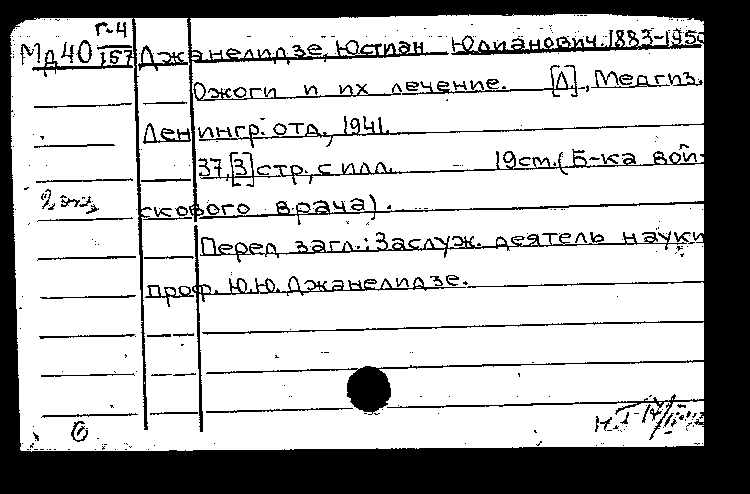 Г-4
Мд40 157 Джанелидзе, Юстиан Юлианович. 1883-1950
Ожоги и их лечение. [Л.], Медгиз.
Ленингр. отд., 1941.
37,[3] стр., с илл. 19см. (Б-ка вой-
2 экз
скового врача).
Перед загл.: Заслуж. деятель науки
проф. Ю.Ю. Джанелидзе.